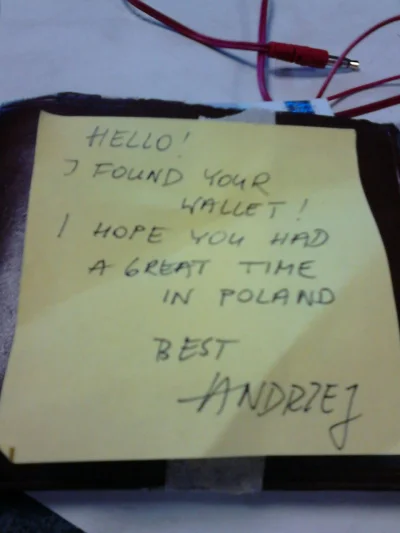 HELLO!
I FOUND YOUR
WALLET!
I HOPE YOU HAD
A GREAT TIME
IN POLAND
BEST
ANDRZEJ